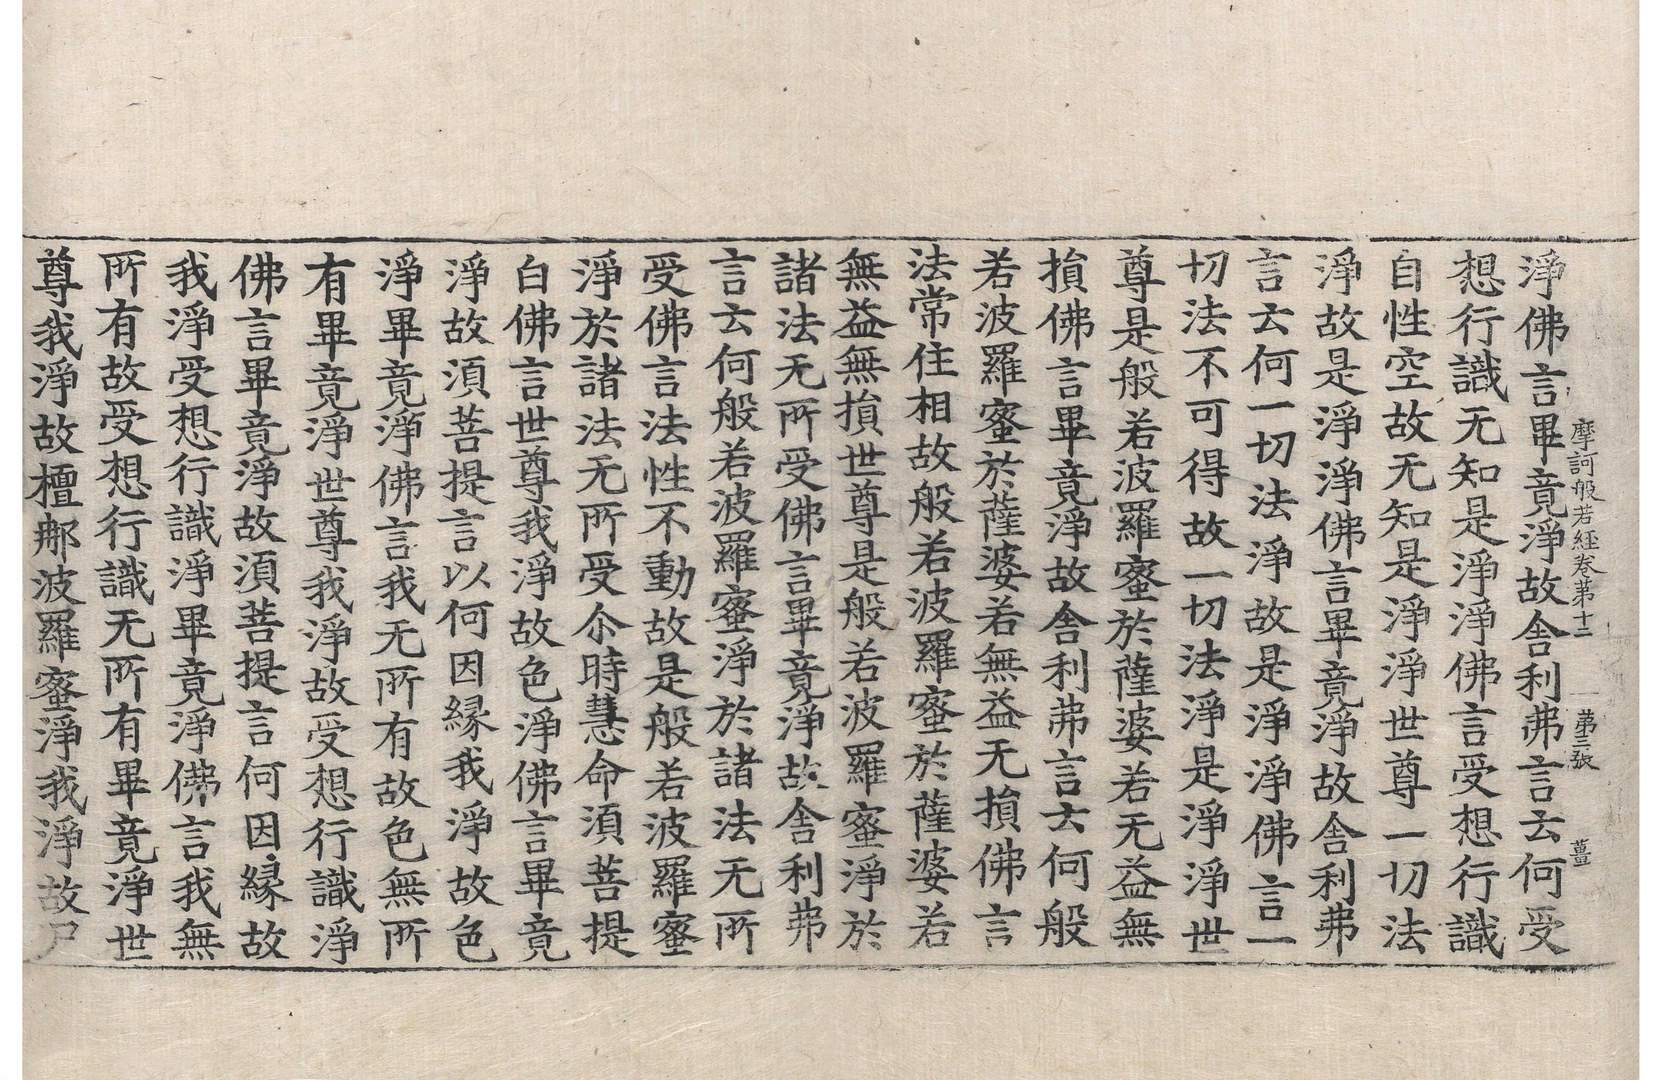 摩訶般若經卷第十二 第三張 薑
淨佛言畢竟淨故舍利弗言云何受
想行識无知是淨淨佛言受想行識
自性空故无知是淨淨世尊一切法
淨故是淨淨佛言畢竟淨故舍利弗
言云何一切法淨故是淨淨佛言一
切法不可得故一切法淨是淨淨世
尊是般若波羅蜜於薩婆若无益無
損佛言畢竟淨故舍利弗言云何般
若波羅蜜於薩婆若無益无損佛言
法常住相故般若波羅蜜於薩婆若
無益無損世尊是般若波羅蜜淨於
諸法无所受佛言畢竟淨故舍利弗
言云何般若波羅蜜淨於諸法无所
受佛言法性不動故是般若波羅蜜
淨於諸法无所受尒時慧命須菩提
白佛言世尊我淨故色淨佛言畢竟
淨故須菩提言以何因縁我淨故色
淨畢竟淨佛言我无所有故色無所
有畢竟淨世尊我淨故受想行識淨
佛言畢竟淨故須菩提言何因縁故
我淨受想行識淨畢竟淨佛言我無
所有故受想行識无所有畢竟淨世
尊我淨故檀那波羅蜜淨我淨故尸